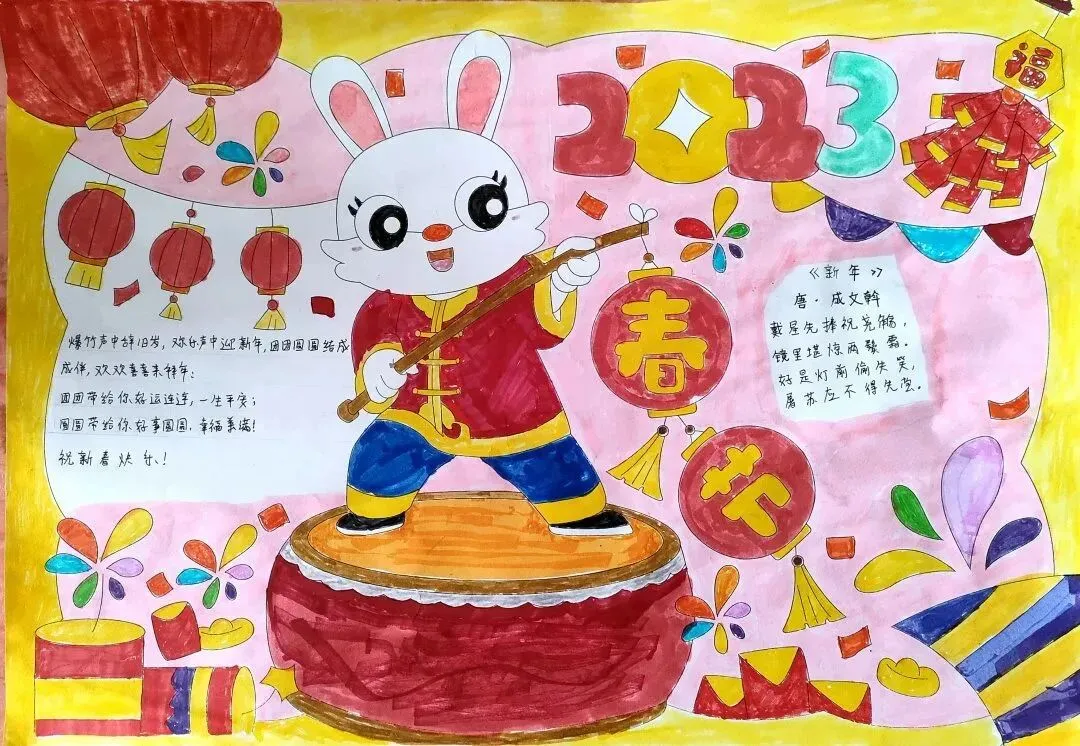 2023
福
春
节
爆竹声中辞旧岁，欢乐声中迎新年，团团圆圆结成
成伴，欢欢喜喜来拜年：
团团带给你好运连连，一生平安；
圆圆带给你好事圆圆，幸福美满！
祝新春快乐！
《新年》
唐·成文斡
戴星先捧祝尧觞，
镜里堪惊两鬓霜。
好是灯前偷失笑，
屠苏应不得先尝。